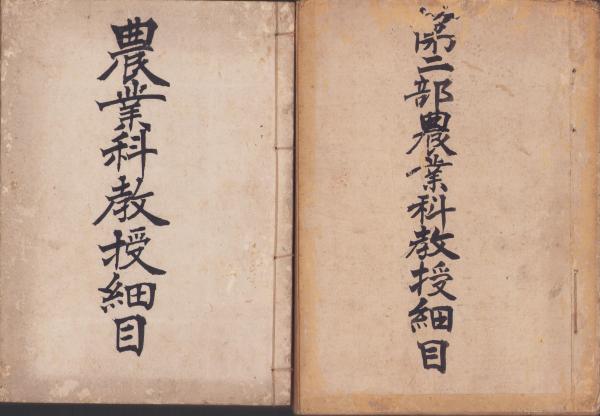 農業科教授細目
第二部農業科教授細目